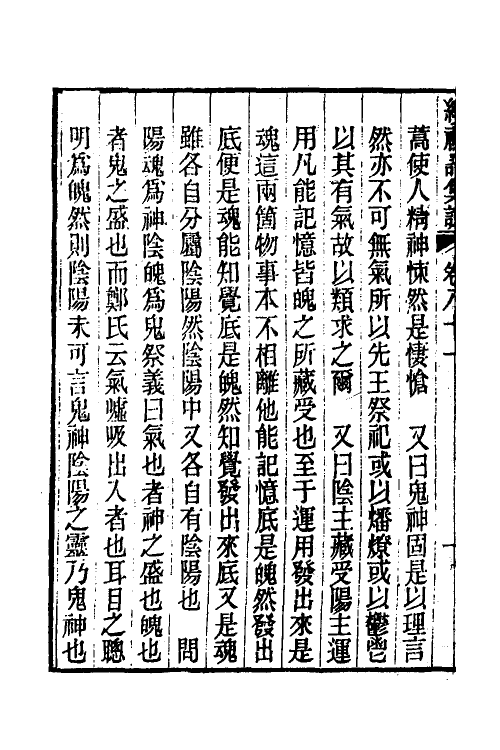 續禮記集說 卷八十一
蒿使人精神悚然是悽愴　又曰鬼神固是以理言
然亦不可無氣所以先王祭祀或以燔燎或以鬱鬯
以其有氣故以類求之爾　又曰陰主藏受陽主運
用凡能記憶皆魄之所藏受也至于運用發出來是
魂這兩箇物事本不相離他能記憶底是魄然發出
底便是魂能知覺底是魄然知覺發出來底又是魂
雖各自分屬陰陽然陰陽中又各自有陰陽也　問
陽魂爲神陰魄爲鬼祭義曰氣也者神之盛也魄也
者鬼之盛也而鄭氏云氣噓吸出入者也耳目之聰
明爲魄然則陰陽未可言鬼神陰陽之靈乃鬼神也